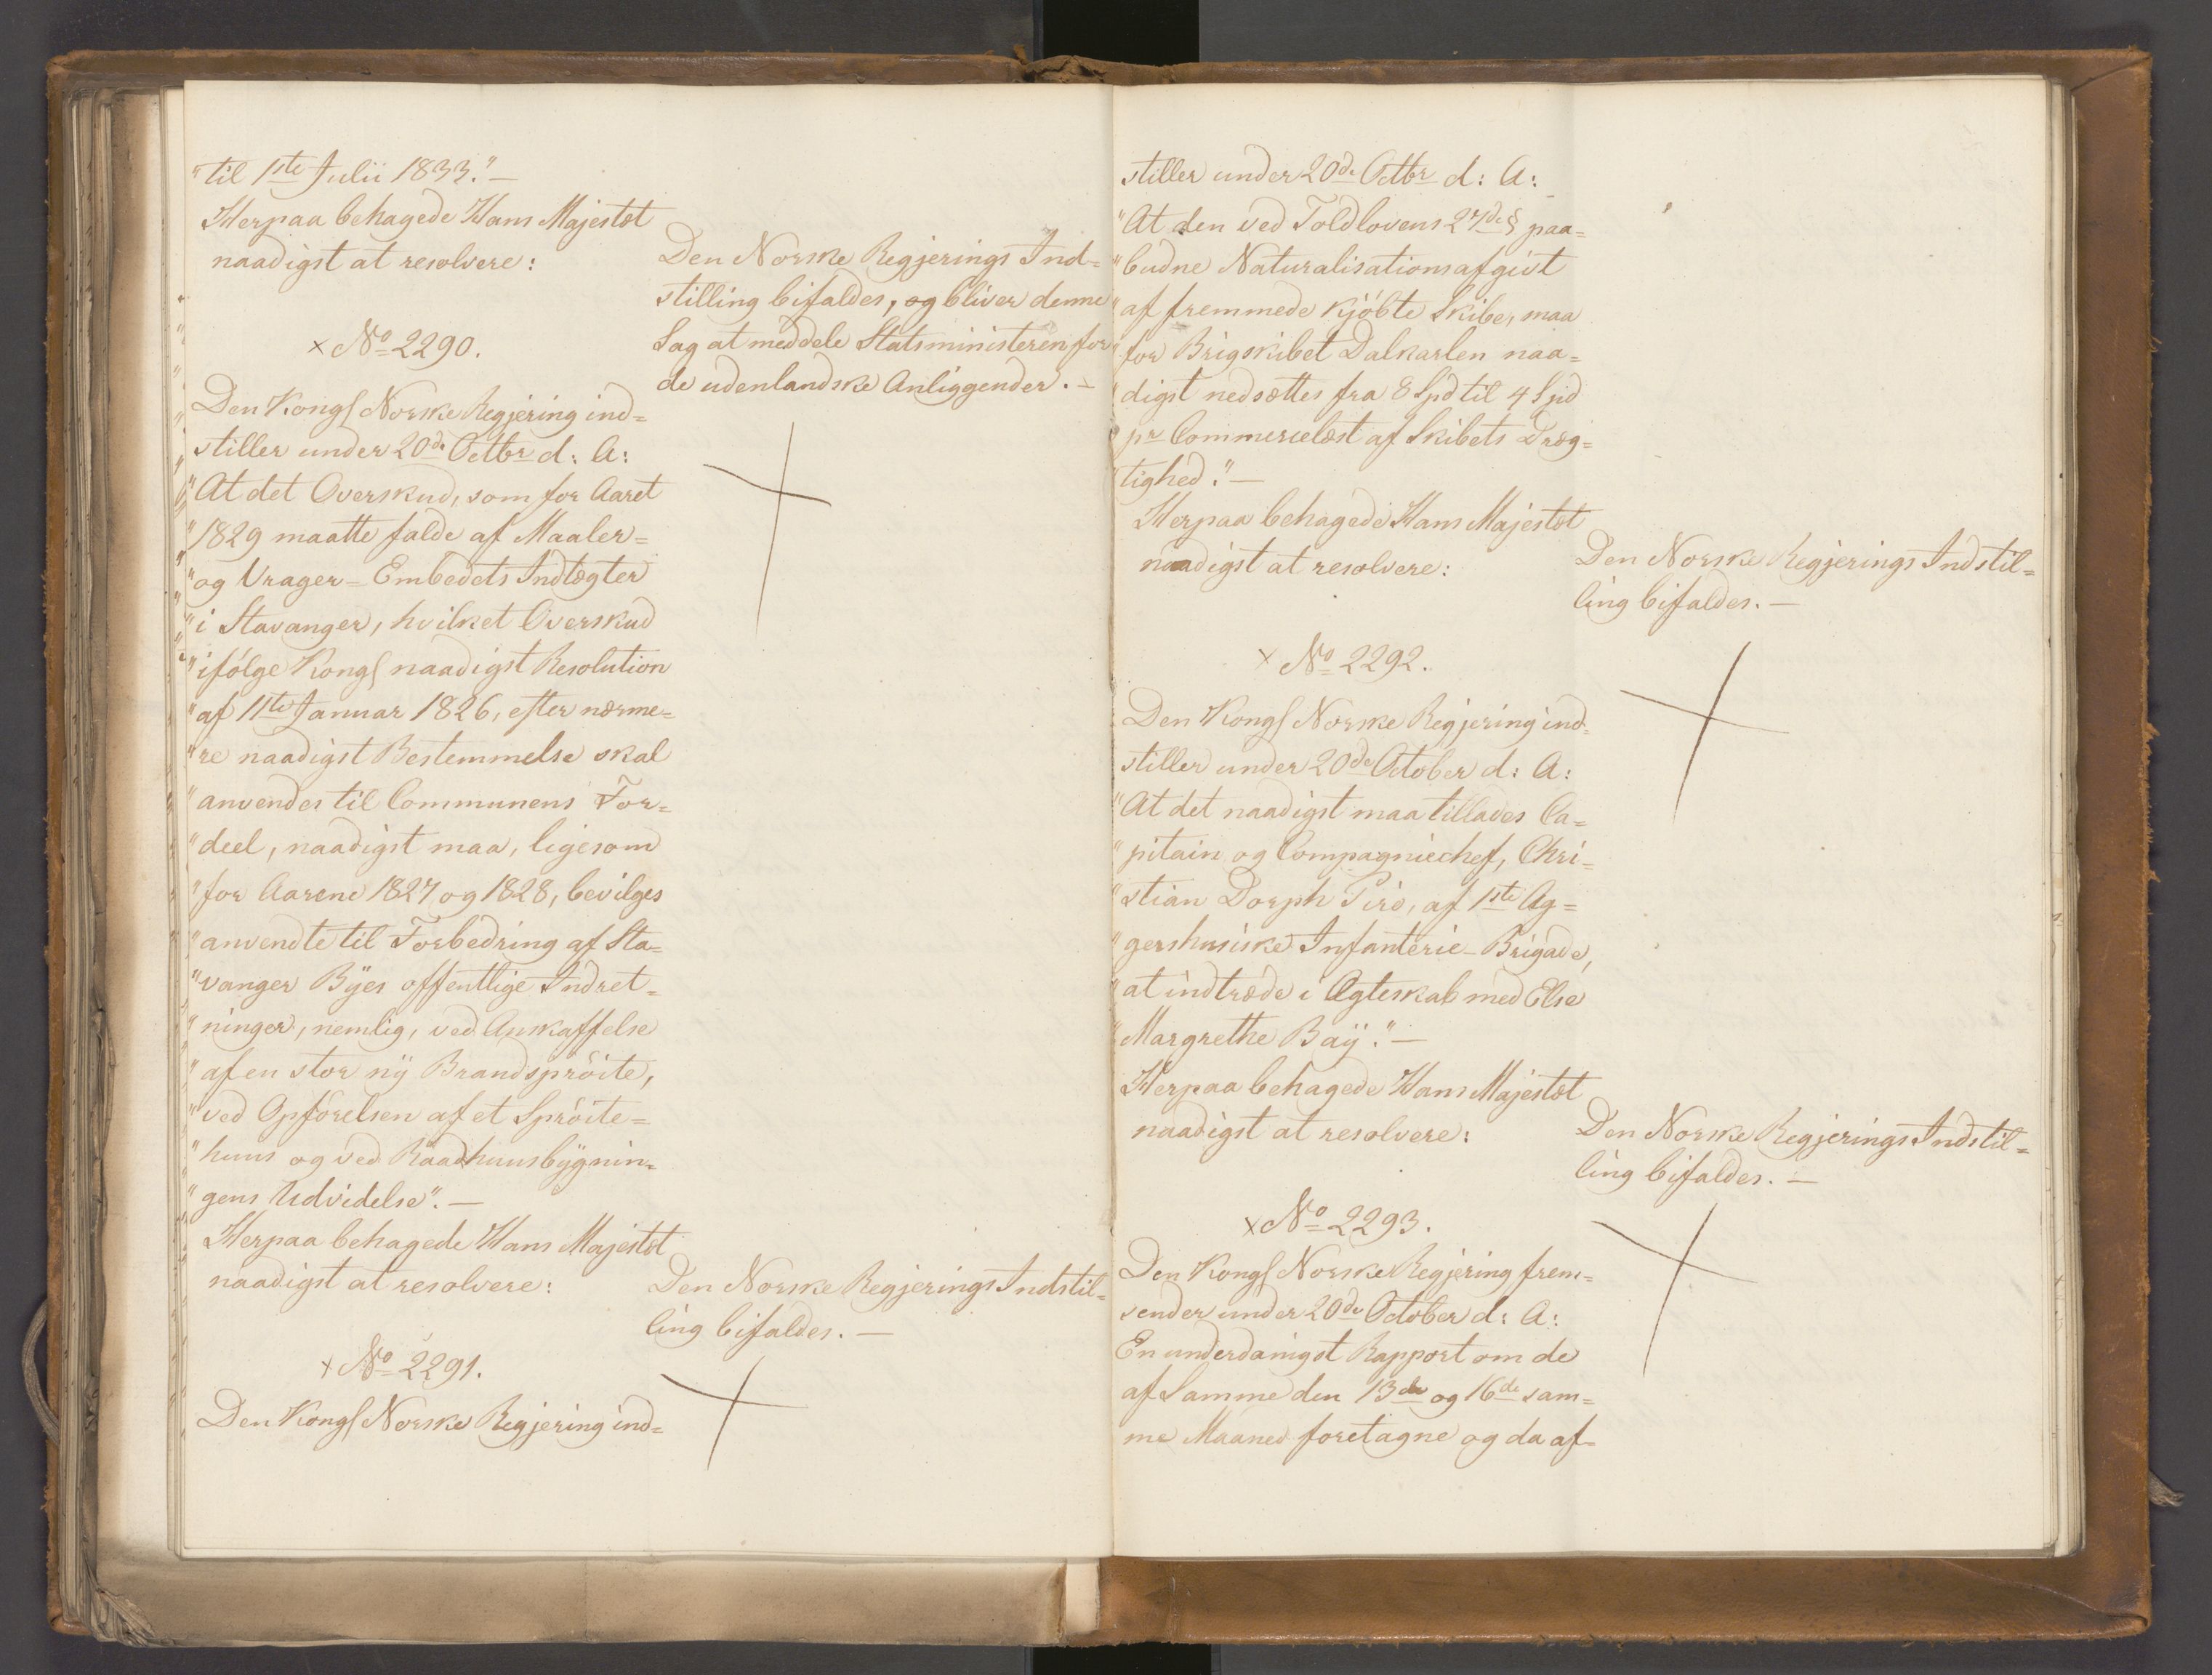 "til 1ste Julii 1833."—
Herpaa behagede Hans Majestæt
naadigst at resolvere:
Den Norske Regjerings Ind=
stilling bifaldes, og bliver denne
Sag at meddele Statsministeren for
de udenlandske Anliggender. —
× No 2290.
Den Kongl Norske Regjering ind=
stiller under 20de Octbr d: A:
"At det Overskud, som for Aaret
"1829 maatte falde af Maaler=
"og Vrager-Embedets Indtægter
"i Stavanger, hvilket Overskud
"ifölge Kongl naadigst Resolution
"af 11te Januar 1826, efter nærme=
"re naadigst Bestemmelse skal
"anvendes til Communens For=
"deel, naadigst maa, ligesom
"for Aarene 1827 og 1828, bevilges
"anvendte til Forbedring af Sta=
"vanger Byes offentlige Indret=
"ninger, nemlig, ved Anskaffelse
"af en stor ny Brandspröite,
"ved Opförelsen af et Spröite=
"huus og ved Raadhuusbygnin=
"gens Udvidelse". —
Herpaa behagede Hans Majestæt
naadigst at resolvere:
Den Norske Regjerings Indstil=
ling bifaldes. —
× No 2291.
Den Kongl Norske Regjering ind=
stiller under 20de Octbr d: A:
"At den ved Toldlovens 27de § paa=
"budne Naturalisationsafgivt
"af fremmede kjöbte Skibe, maa
"for Brigskibet Dalkarlen naa=
"digst nedsættes fra 8 Spd til 4 Spd
"pr Commercelæst af Skibets Dræg=
"tighed." —
Herpaa behagede Hans Majestæt
naadigst at resolvere:
Den Norske Regjerings Indstil=
ling bifaldes. —
× No 2292.
Den Kongl Norske Regjering ind=
stiller under 20de October d: A:
"At det naadigst maa tillades Ca=
"pitain og Compagniechef, Chri=
"stian Dorph Piro, af 1ste Ag=
"gershusiske Infanterie-Brigade,
"at indtræde i Ægteskab med Else
"Margrethe Bay." —
Herpaa behagede Hans Majestæt
naadigst at resolvere:
Den Norske Regjerings Indstil=
ling bifaldes. —
× No 2293.
Den Kongl Norske Regjering frem=
sender under 20de October d: A:
En underdanigst Rapport om de
af Samme den 13de og 16de sam=
me Maaned foretagne og da af=